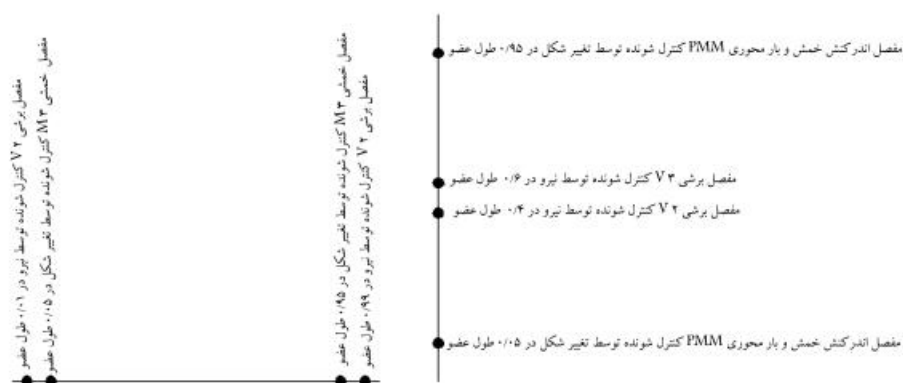 مفصل برشی V ۲ کنترل شونده توسط نیرو در ۰/۰۱ طول عضو
مفصل خمشی M ۳ کنترل شونده توسط تغییر شکل در ۰/۰۵ طول عضو
مفصل خمشی M ۳ کنترل شونده توسط تغییر شکل در ۰/۹۵ طول عضو
مفصل برشی V ۲ کنترل شونده توسط نیرو در ۰/۹۹ طول عضو
مفصل اندرکنش خمش و بار محوری PMM کنترل شونده توسط تغییر شکل در ۰/۹۵ طول عضو
مفصل برشی V ۳ کنترل شونده توسط نیرو در ۰/۶ طول عضو
مفصل برشی V ۲ کنترل شونده توسط نیرو در ۰/۴ طول عضو
مفصل اندرکنش خمش و بار محوری PMM کنترل شونده توسط تغییر شکل در ۰/۰۵ طول عضو